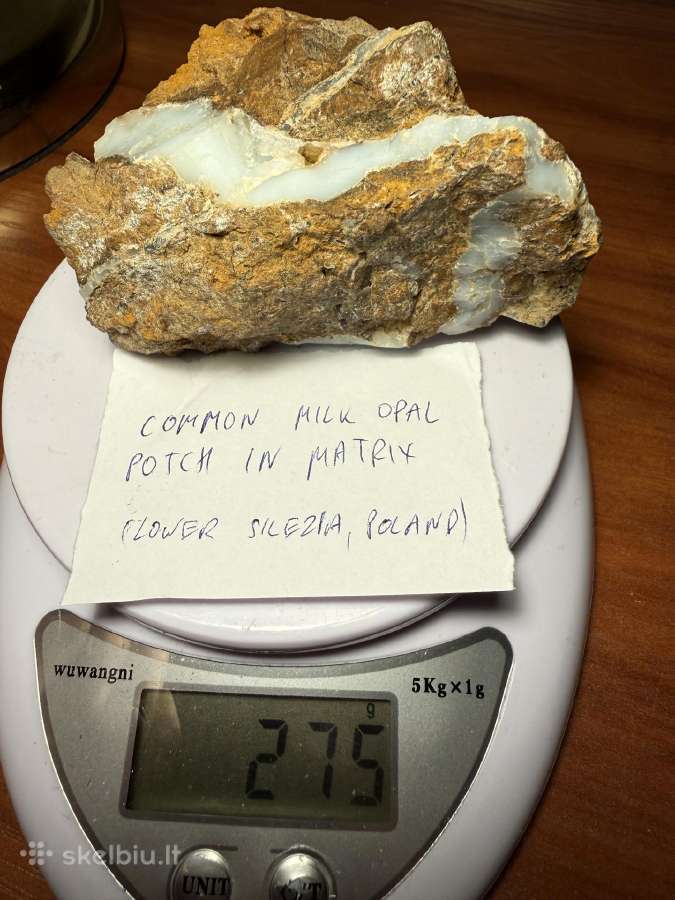 COMMON MILK OPAL
POTCH IN MATRIX
(LOWER SILEZIA, POLAND)
wuwangni
5Kg×1g
g
275
UNIT
skelbiu.lt